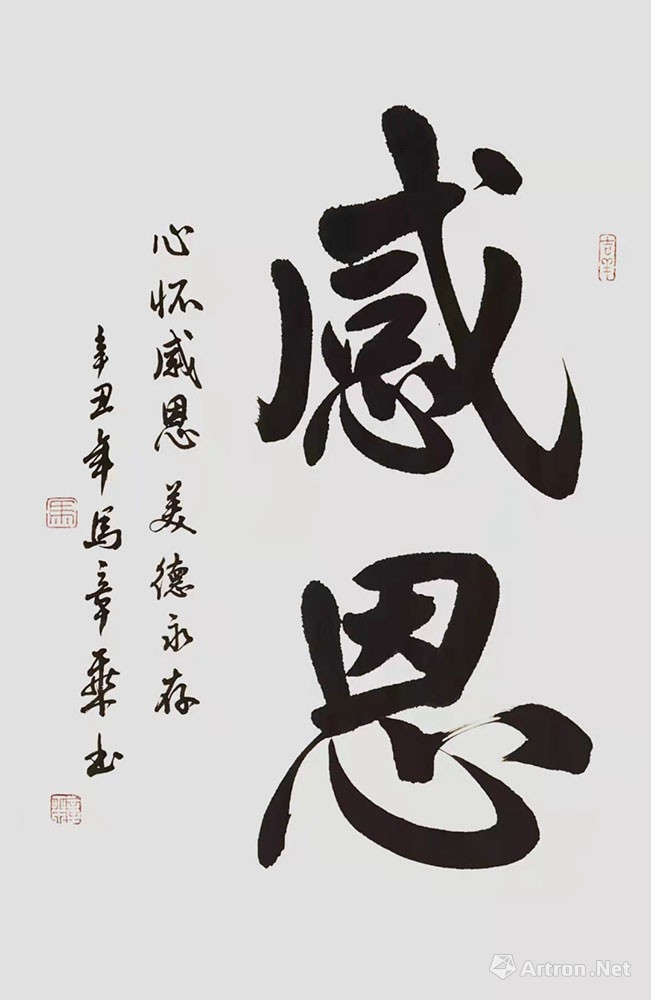 感恩
心怀感恩 美德永存
辛丑年馬章乘书
Artron.Net